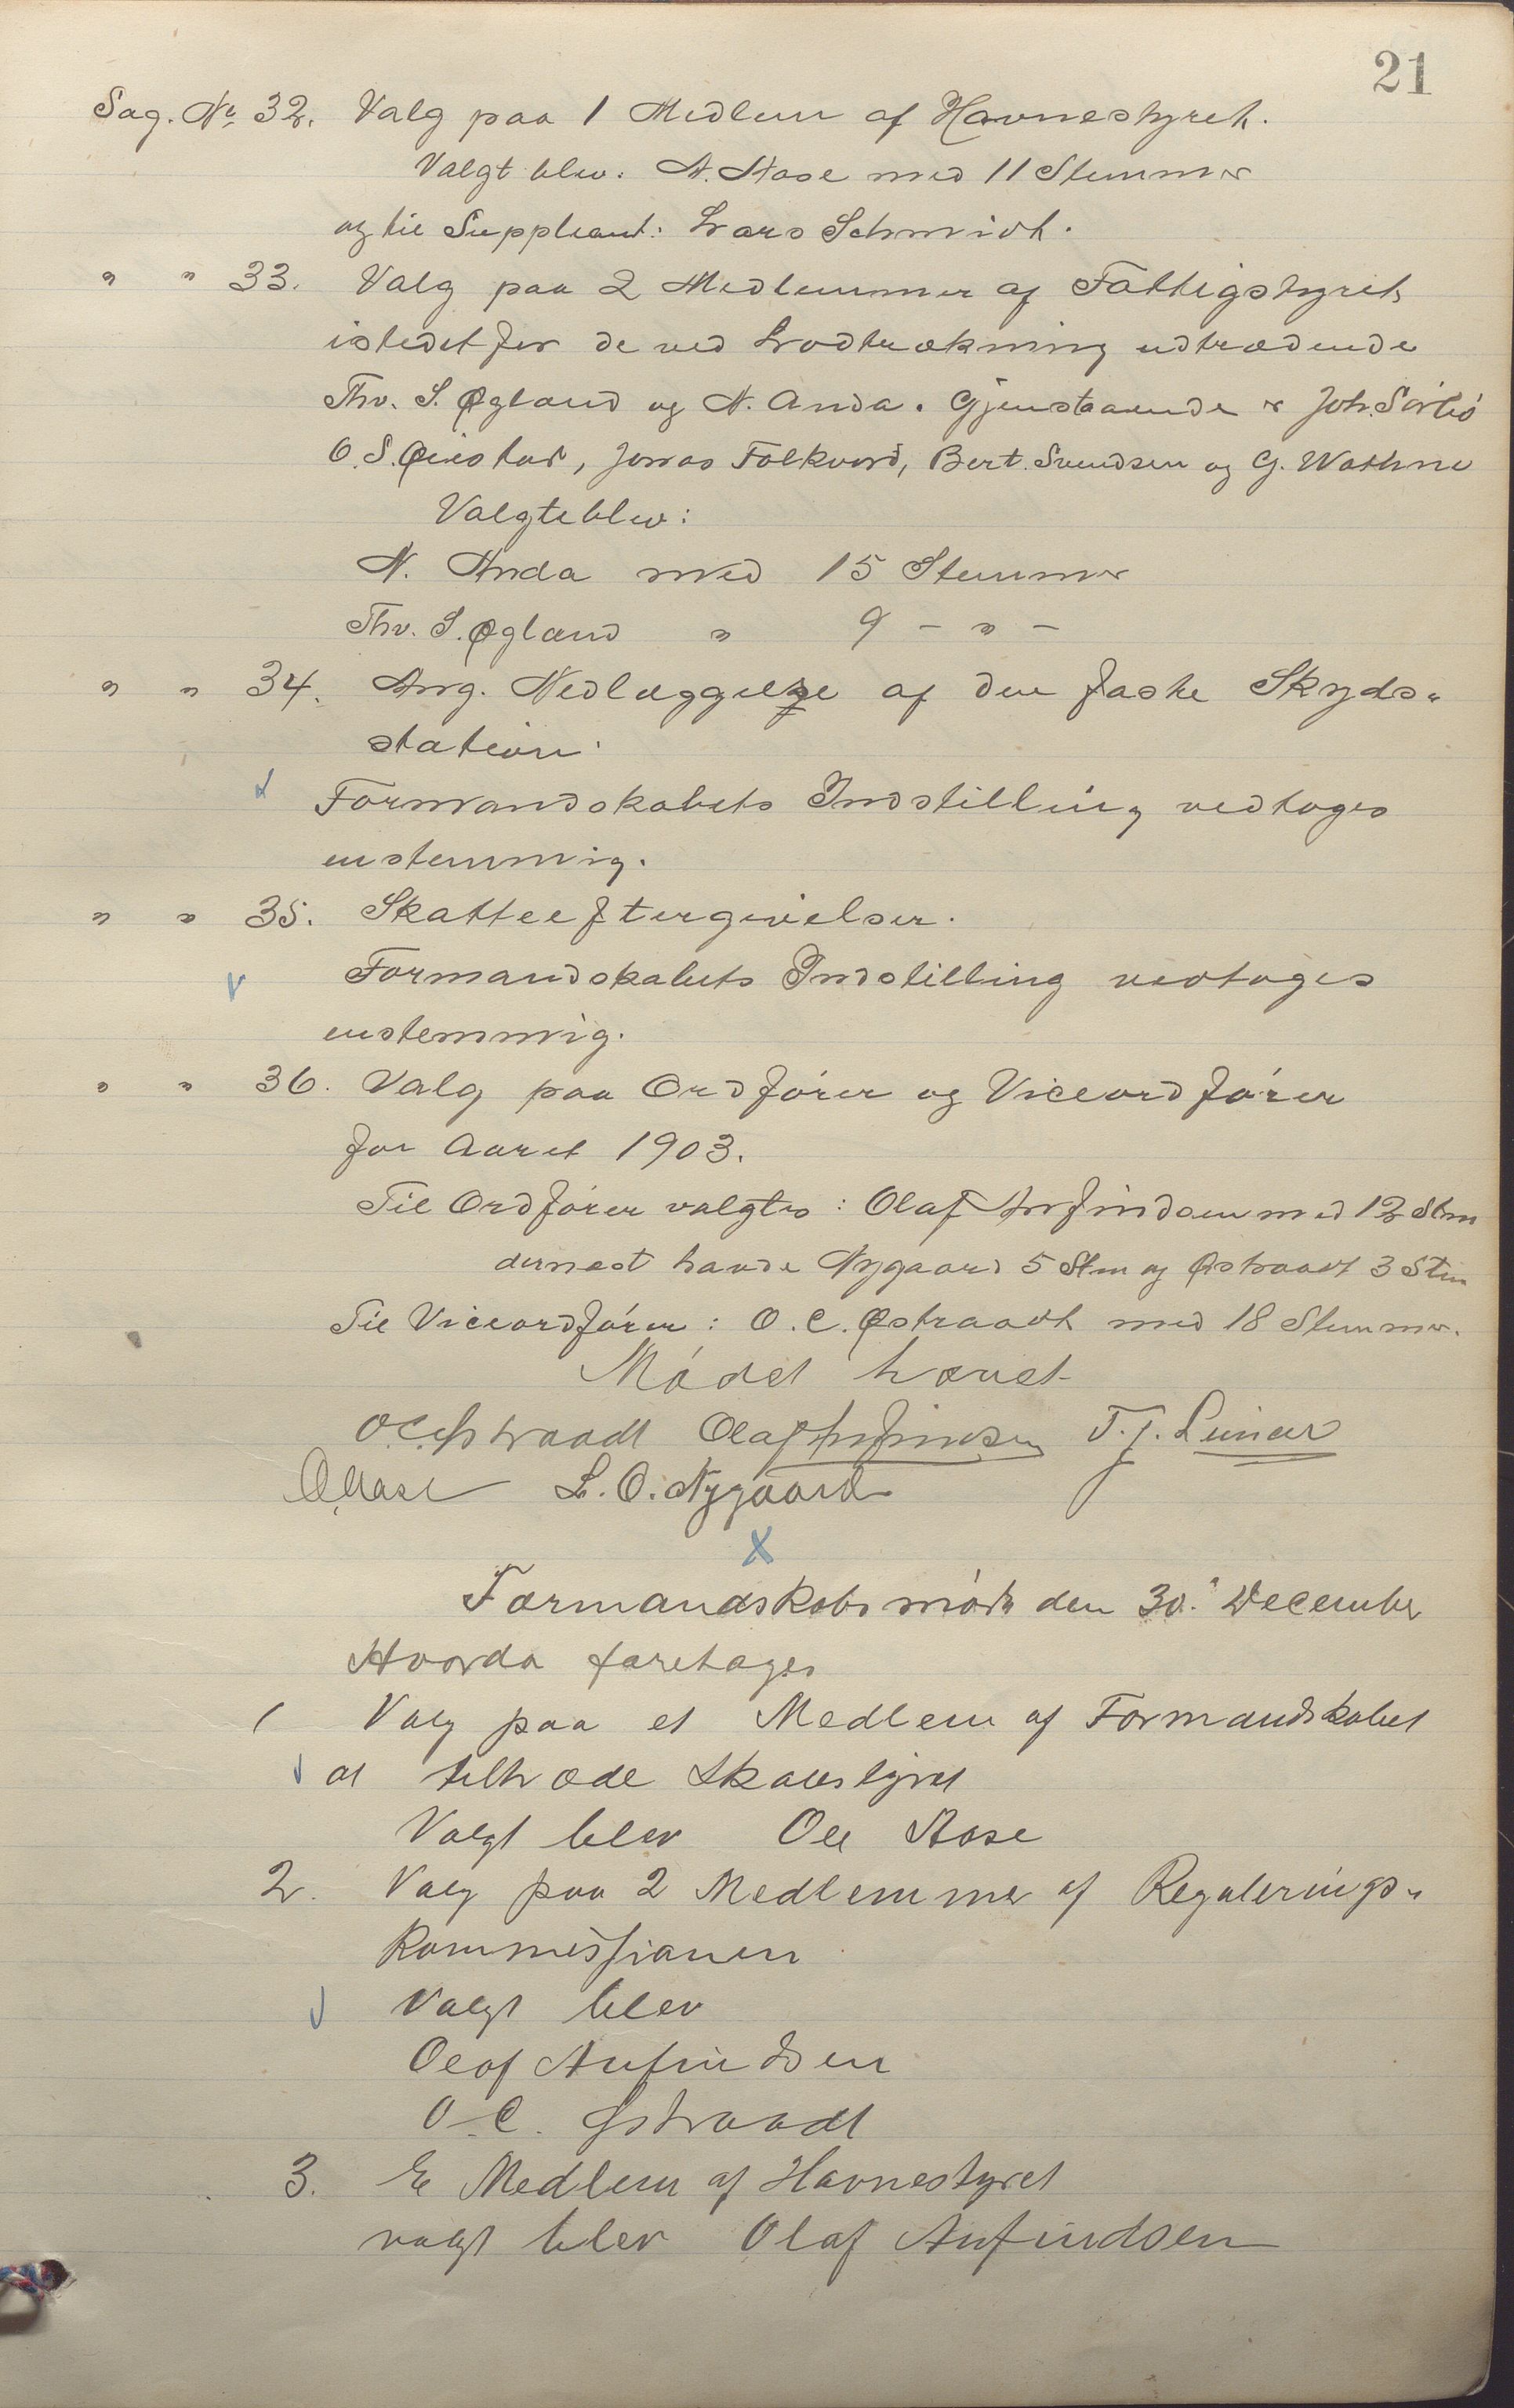 21
Sag. No 32. Valg paa 1 Medlem af Havnestyret.
Valgt blev: A. Aase med 11 Stemmer
og til Suppleant: Lars Schmidt.
" " 33. Valg paa 2 Medlemmer af Fattigstyret
istedetfor de ved Lodtrækning udtrædende
Thv. S. Øgland og N. Anda. Gjenstaaende er Joh. Sörbö
O. S. Qvistad, Jonas Folkvord, Bert. Svendsen og G. Wathne
Valgte blev:
N. Anda med 15 Stemmer
Thv. S. Øgland " 9 - " -
" " 34. Ang. Nedlæggelse af den faste Skyds-
station.
Formandskabets Indstilling vedtoges
enstemmig.
" " 35. Skatteeftergivelser.
Formandskabets Indstilling vedtoges
enstemmig.
" " 36. Valg paa Ordfører og Viceordfører
for Aaret 1903.
Til Ordfører valgtes: Olaf Anfindsen med 12 Stm
dernæst havde Nygaard 5 Stm og Østraadt 3 Stm
Til Viceordfører: O. C. Østraadt med 18 Stemmer.
Mødet hævet
O C Østraadt Olaf Anfindsen T. J.
O Aase L. O. Nygaard
X
Formandskabsmøde den 30. December
Hvorda foretages
1 Valg paa et Medlem af Formandskabet
at tiltræde Skolestyret
Valgt blev Ole Aase
2. Valg paa 2 Medlemmer af Regulerings-
kommissionen
Valgt blev
Olaf Anfindsen
O. C. Østraadt
3. Et Medlem af Havnestyret
valgt blev Olaf Anfindsen